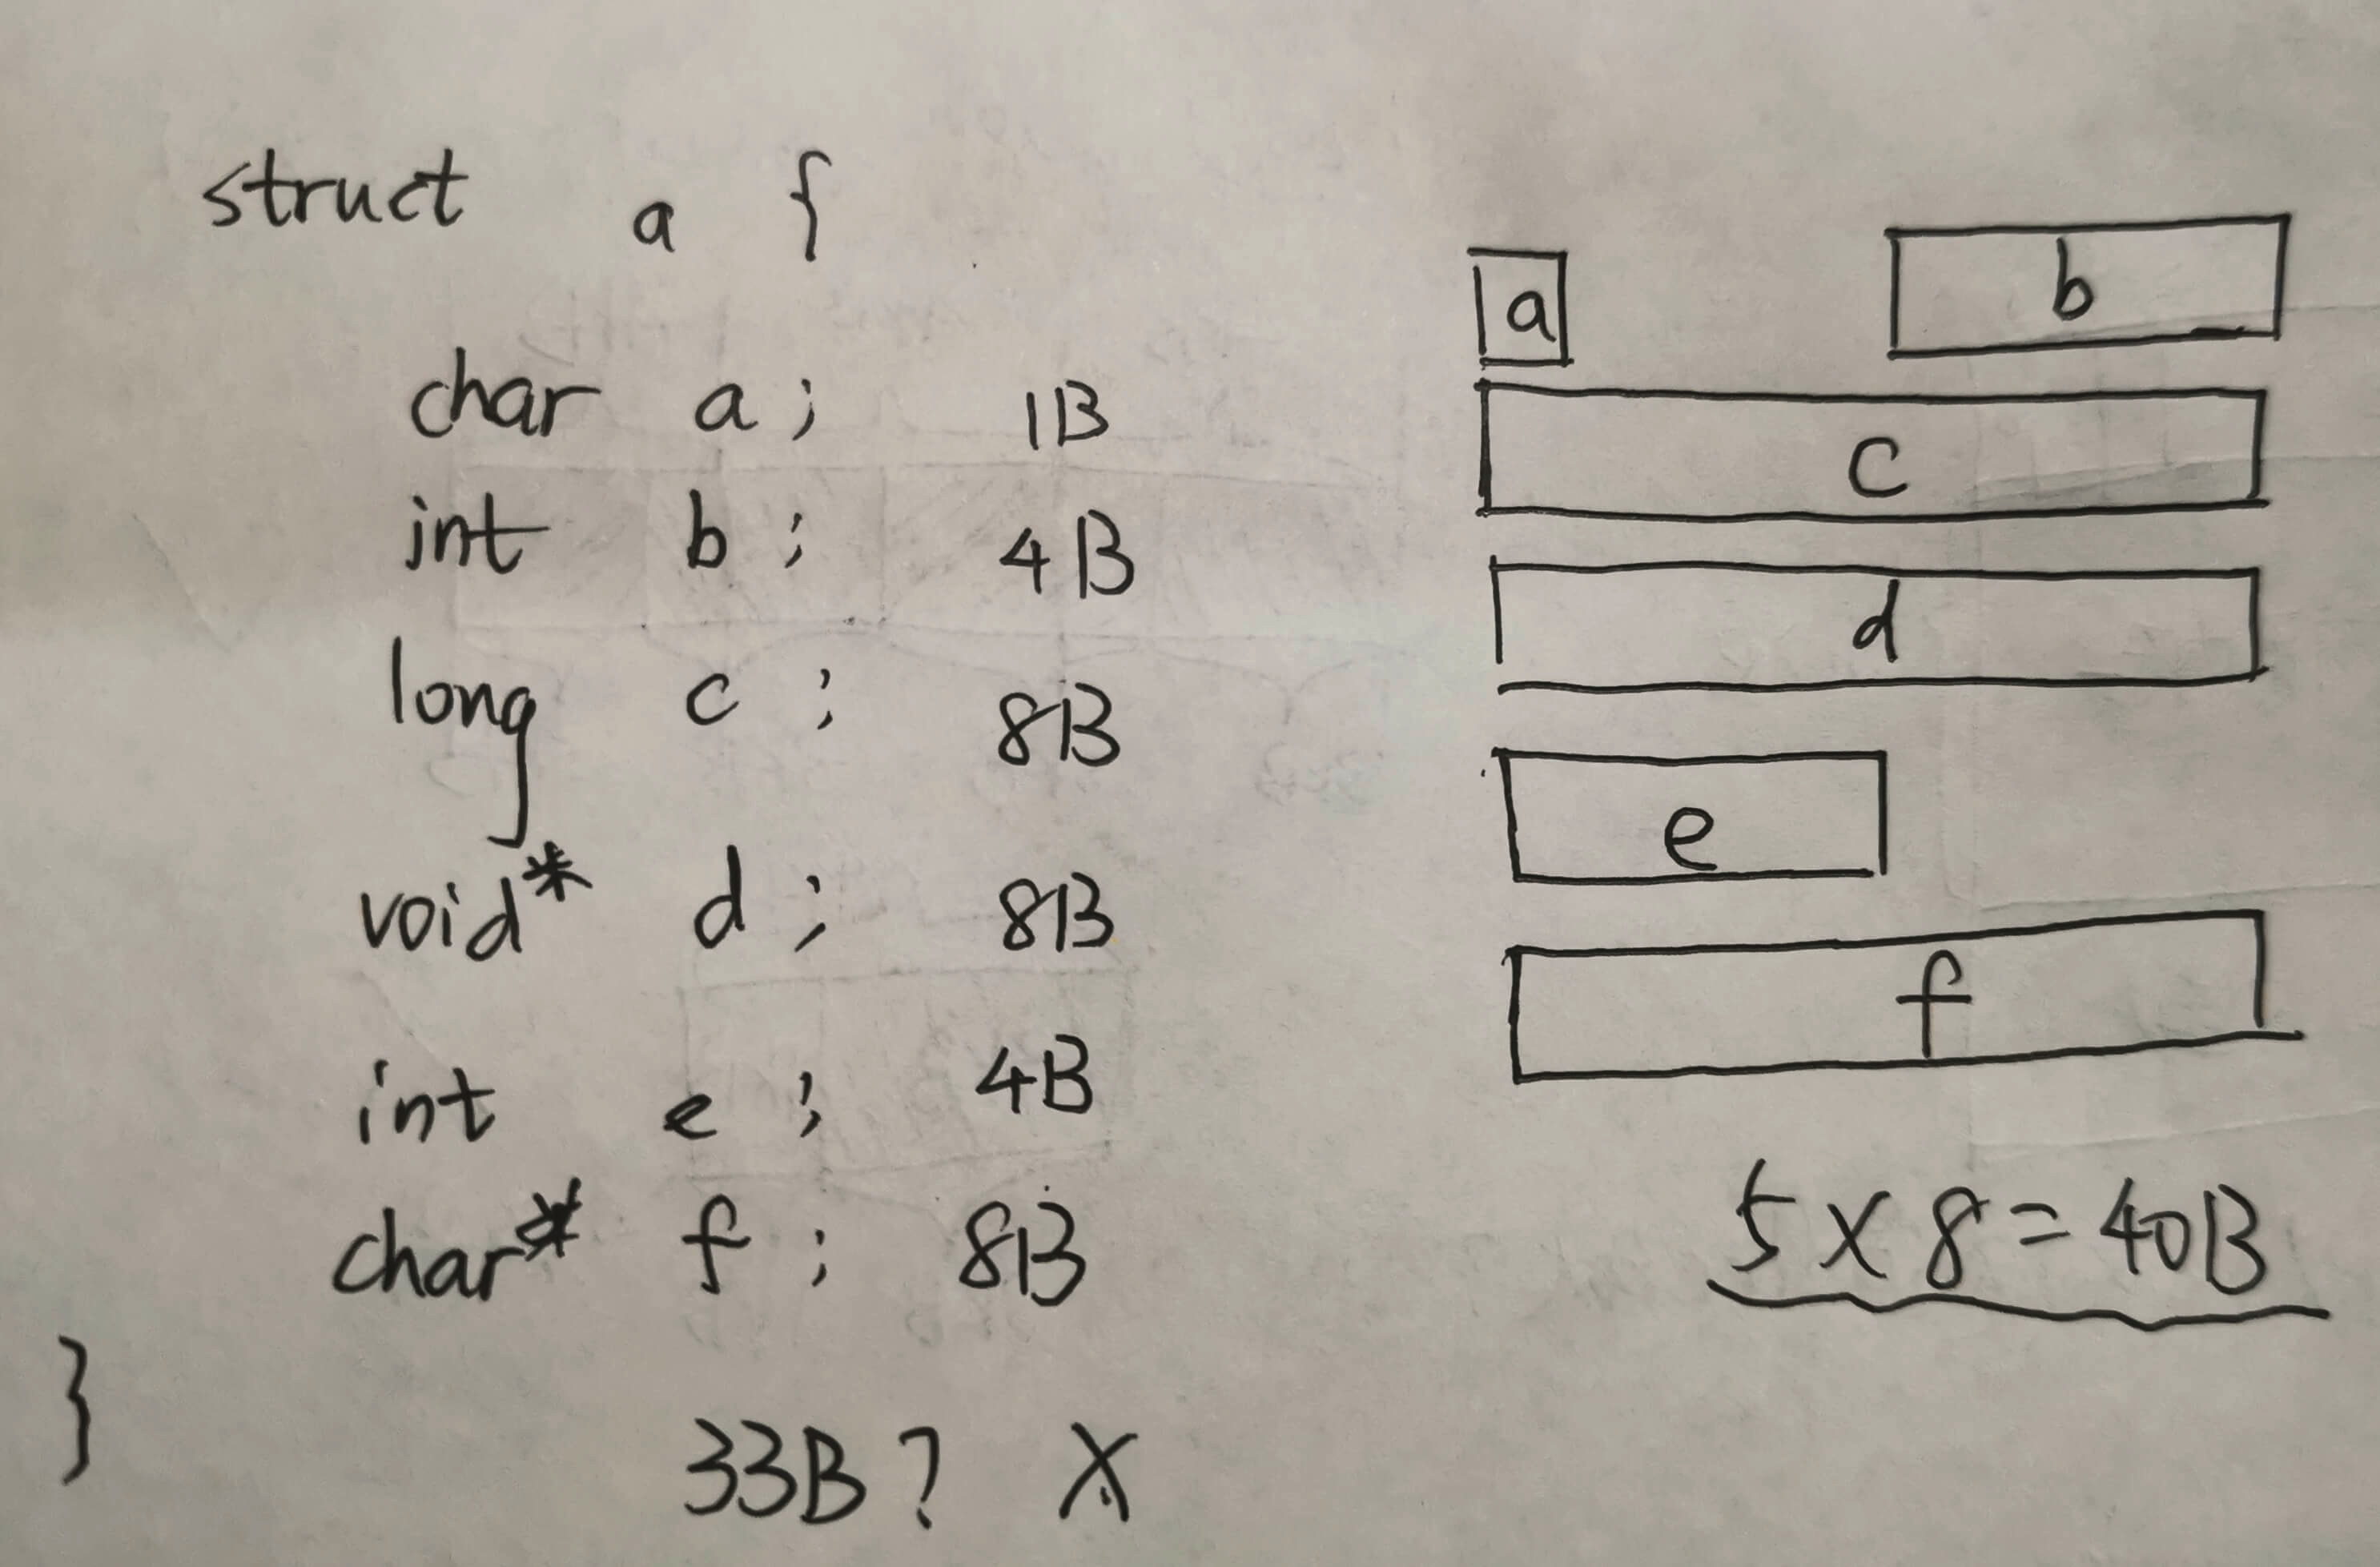 struct a {
char a; 1B
int b; 4B
long c; 8B
void* d; 8B
int e; 4B
char* f; 8B
}
33B? X
a b
c
d
e
f
5 x 8 = 40B